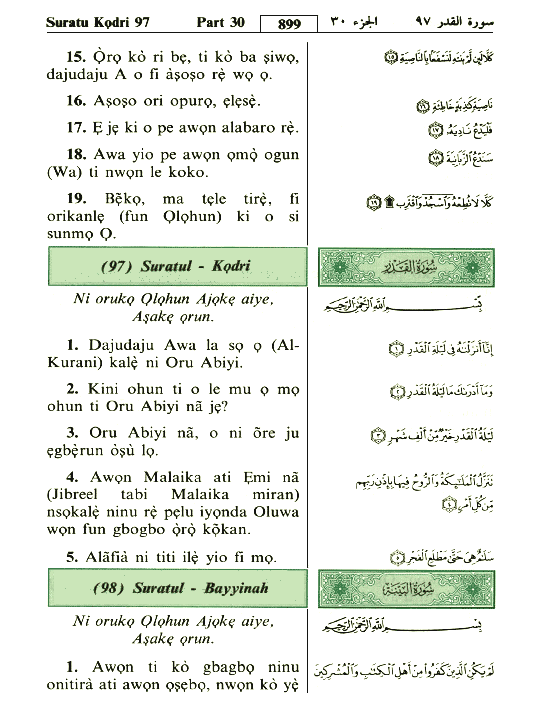 Suratu Kọdri 97 Part 30 899 الجزء ٣٠ سورة القدر ٩٧
15. Ọ̀rọ kò ri bẹ, ti kò ba ṣiwọ,
dajudaju A o fi àṣoṣo rẹ̀ wọ ọ.
كَلَّا لَئِن لَّمْ يَنتَهِ لَنَسْفَعًۢا بِٱلنَّاصِيَةِ ﴿١٥﴾
16. Aṣoṣo ori opurọ, ẹlẹṣẹ̀.
نَاصِيَةٍ كَٰذِبَةٍ خَاطِئَةٍ ﴿١٦﴾
17. Ẹ jẹ ki o pe awọn alabaro rẹ̀.
فَلْيَدْعُ نَادِيَهُۥ ﴿١٧﴾
18. Awa yio pe awọn ọmọ̀ ogun
(Wa) ti nwọn le koko.
سَنَدْعُ ٱلزَّبَانِيَةَ ﴿١٨﴾
19. Bẹ̃kọ, ma tẹle tirẹ̀, fi
orikanlẹ̀ (fun Ọlọhun) ki o si
sunmọ Ọ.
كَلَّا لَا تُطِعْهُ وَٱسْجُدْ وَٱقْتَرِب ۩ ﴿١٩﴾
(97) Suratul - Kọdri
سُورَةُ القَدْرِ
Ni orukọ Ọlọhun Ajọkẹ aiye,
Aṣakẹ ọrun.
بِسْمِ ٱللَّهِ ٱلرَّحْمَٰنِ ٱلرَّحِيمِ
1. Dajudaju Awa la sọ ọ (Al-
Kurani) kalẹ̀ ni Oru Abiyi.
إِنَّآ أَنزَلْنَٰهُ فِى لَيْلَةِ ٱلْقَدْرِ ﴿١﴾
2. Kini ohun ti o le mu ọ mọ
ohun ti Oru Abiyi nã jẹ?
وَمَآ أَدْرَىٰكَ مَا لَيْلَةُ ٱلْقَدْرِ ﴿٢﴾
3. Oru Abiyi nã, o ni õre ju
ẹgbẹ̀run òṣù lọ.
لَيْلَةُ ٱلْقَدْرِ خَيْرٌ مِّنْ أَلْفِ شَهْرٍ ﴿٣﴾
4. Awọn Malaika ati Ẹmi nã
(Jibreel tabi Malaika miran)
nsọkalẹ̀ ninu rẹ̀ pẹlu iyọnda Oluwa
wọn fun gbogbo ọ̀rọ̀ kọ̃kan.
تَنَزَّلُ ٱلْمَلَٰٓئِكَةُ وَٱلرُّوحُ فِيهَا بِإِذْنِ رَبِّهِم
مِّن كُلِّ أَمْرٍ ﴿٤﴾
5. Alãfià ni titi ilẹ̀ yio fi mọ.
سَلَٰمٌ هِىَ حَتَّىٰ مَطْلَعِ ٱلْفَجْرِ ﴿٥﴾
(98) Suratul - Bayyinah
سُورَةُ البَيِّنَةِ
Ni orukọ Ọlọhun Ajọkẹ aiye,
Aṣakẹ ọrun.
بِسْمِ ٱللَّهِ ٱلرَّحْمَٰنِ ٱلرَّحِيمِ
1. Awọn ti kò gbagbọ ninu
onitirà ati awọn ọṣẹbọ, nwọn kò yẹ̀
لَمْ يَكُنِ ٱلَّذِينَ كَفَرُوا۟ مِنْ أَهْلِ ٱلْكِتَٰبِ وَٱلْمُشْرِكِينَ